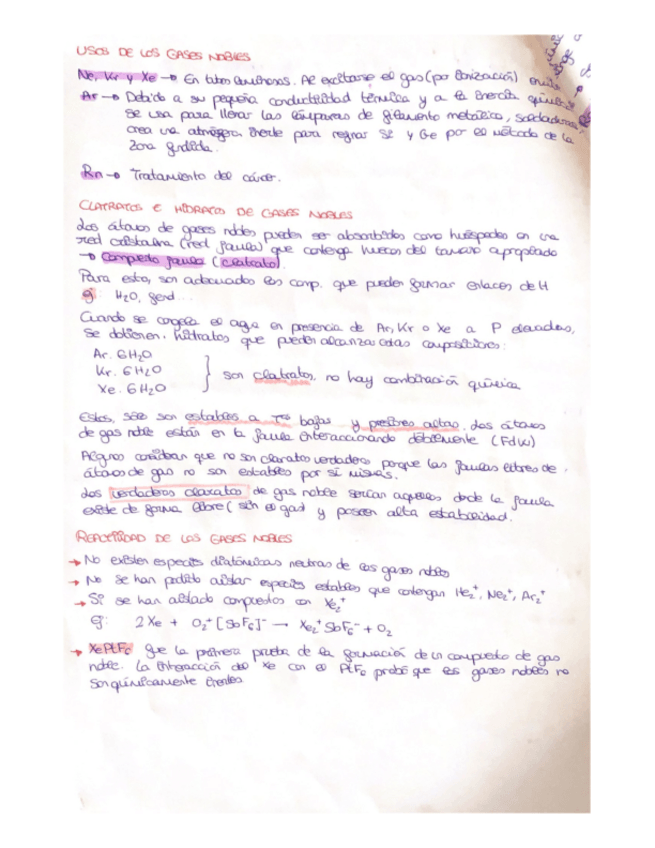 USOS DE LOS GASES NOBLES
Ne, Kr y Xe → En tubos luminosos. Al excitarse el gas (por ionización)
Ar → Debido a su pequeña conductividad térmica y a la inercia química
se usa para llenar las lámparas de filamento metálico, soldaduras,
crea una atmósfera inerte para refinar Si y Ge por el método de la
zona fundida.
Rn → Tratamiento del cáncer.
CLATRATOS E HIDRATOS DE GASES NOBLES
Los átomos de gases nobles pueden ser absorbidos como huéspedes en una
red cristalina (red jaula) que contenga huecos del tamaño apropiado
→ Compuesto jaula (clatrato).
Para esto, son adecuados los comp. que pueden formar enlaces de H
ej: H₂O, fenol...
Cuando se congela el agua en presencia de Ar, Kr o Xe a P elevadas,
se obtienen hidratos que pueden alcanzar estas composiciones:
Ar. 6H₂O
Kr. 6H₂O } son clatratos, no hay combinación química
Xe. 6H₂O
Estos, sólo son estables a Tᵃˢ bajas y presiones altas. Los átomos
de gas noble están en la jaula interaccionando débilmente (FdW)
Algunos consideran que no son clatratos verdaderos porque las jaulas libres de
átomos de gas no son estables por sí mismas.
Los verdaderos clatratos de gas noble serían aquellos donde la jaula
existe de forma libre (sin el gas) y poseen alta estabilidad.
REACTIVIDAD DE LOS GASES NOBLES
→ No existen especies diatómicas neutras de los gases nobles
→ No se han podido aislar especies estables que contengan He₂⁺, Ne₂⁺, Ar₂⁺
→ Sí se han aislado compuestos con Xe₂⁺
ej: 2Xe + O₂⁺[SbF₆]⁻ → Xe₂⁺SbF₆⁻ + O₂
→ XePtF₆ fue la primera prueba de la formación de un compuesto de gas
noble. La interacción del Xe con el PtF₆ probó que los gases nobles no
son químicamente inertes.